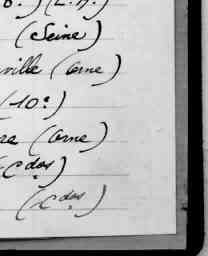 (Seine)
ville (Orne)
(10e)
re (Orne)
(Cdos)
(Cdos)